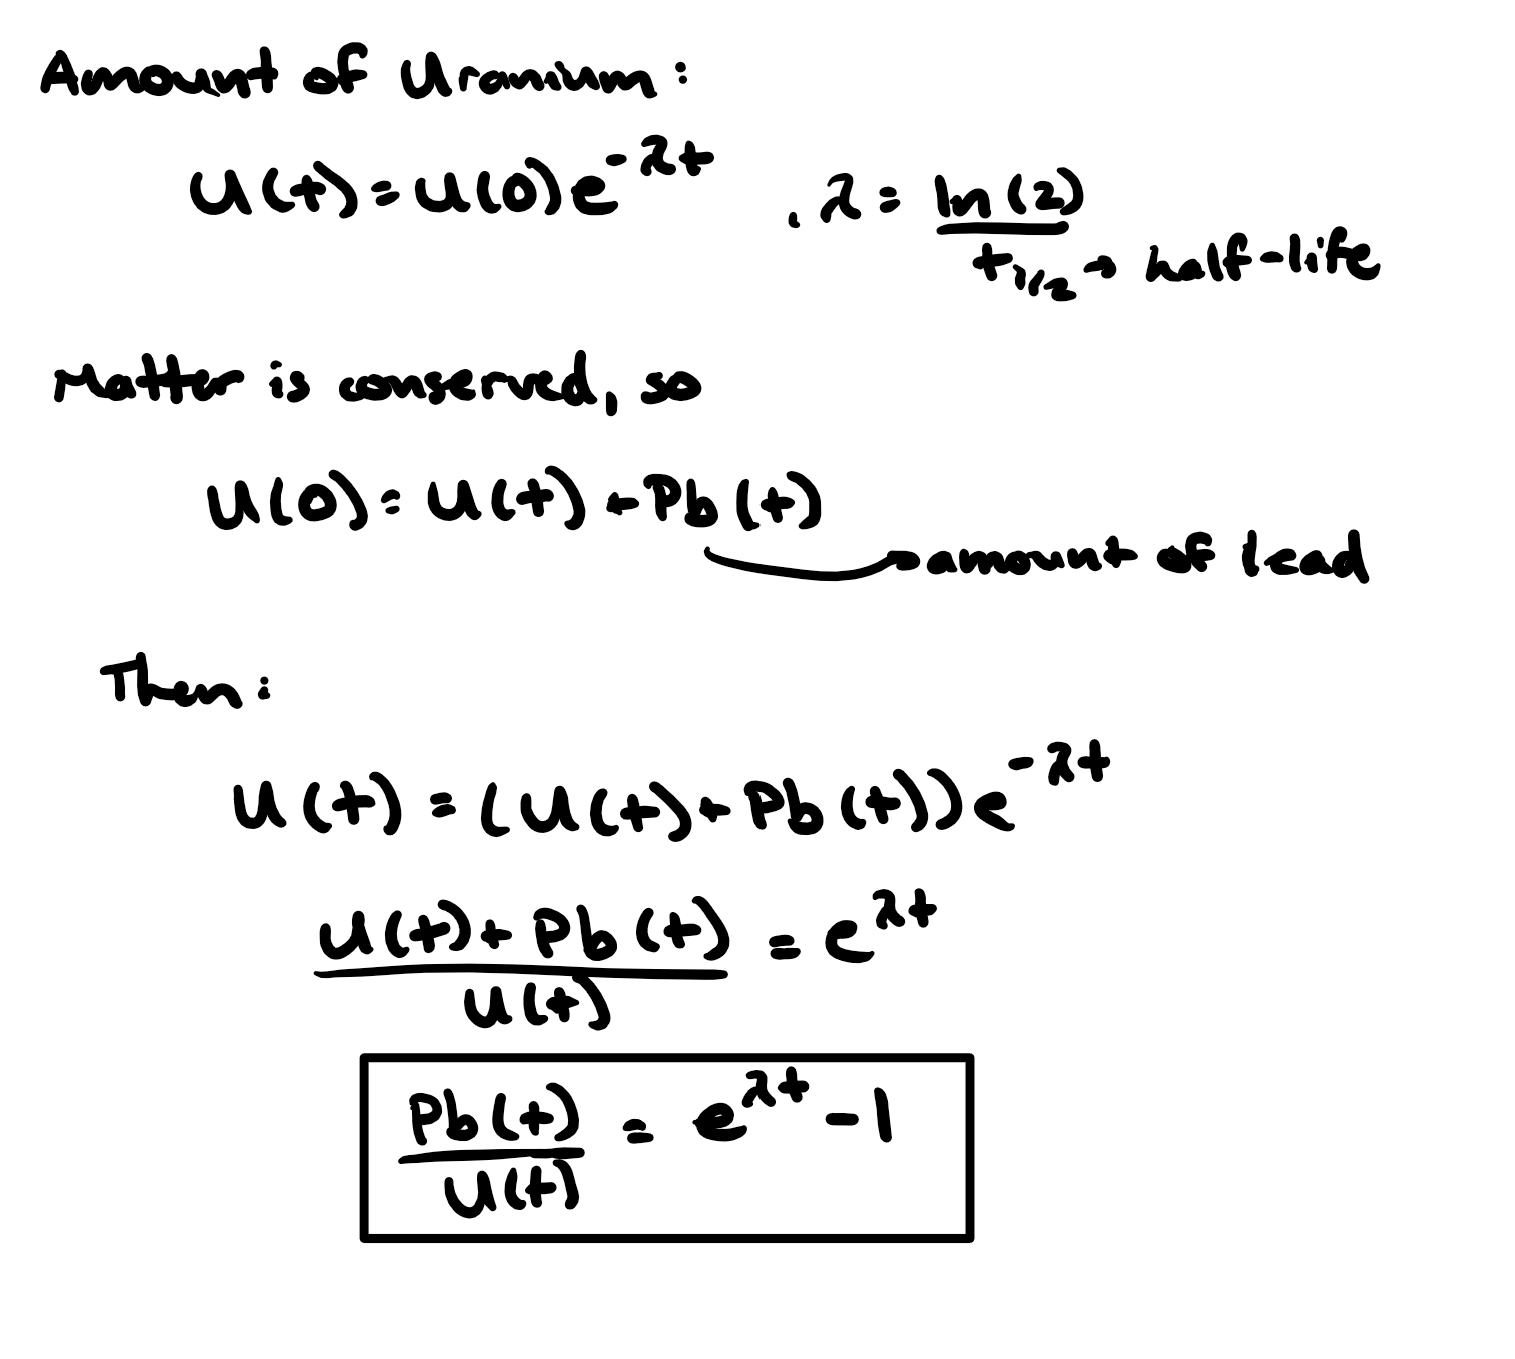 Amount of Uranium:
U(t) = U(0)e^{-λt} , λ = ln(2) / t_{1/2} → half-life
Matter is conserved, so
U(0) = U(t) + Pb(t)
→ amount of lead
Then:
U(t) = (U(t) + Pb(t))e^{-λt}
U(t) + Pb(t) / U(t) = e^{λt}
Pb(t) / U(t) = e^{λt} - 1